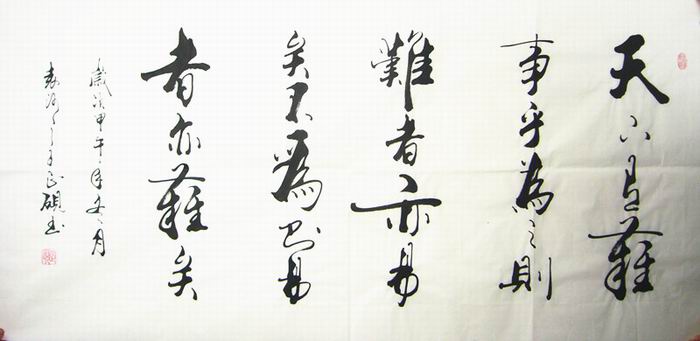 天下有難
事乎為之則
難者亦易
矣不為则易
者亦難矣
歲次甲午年冬月
硯书